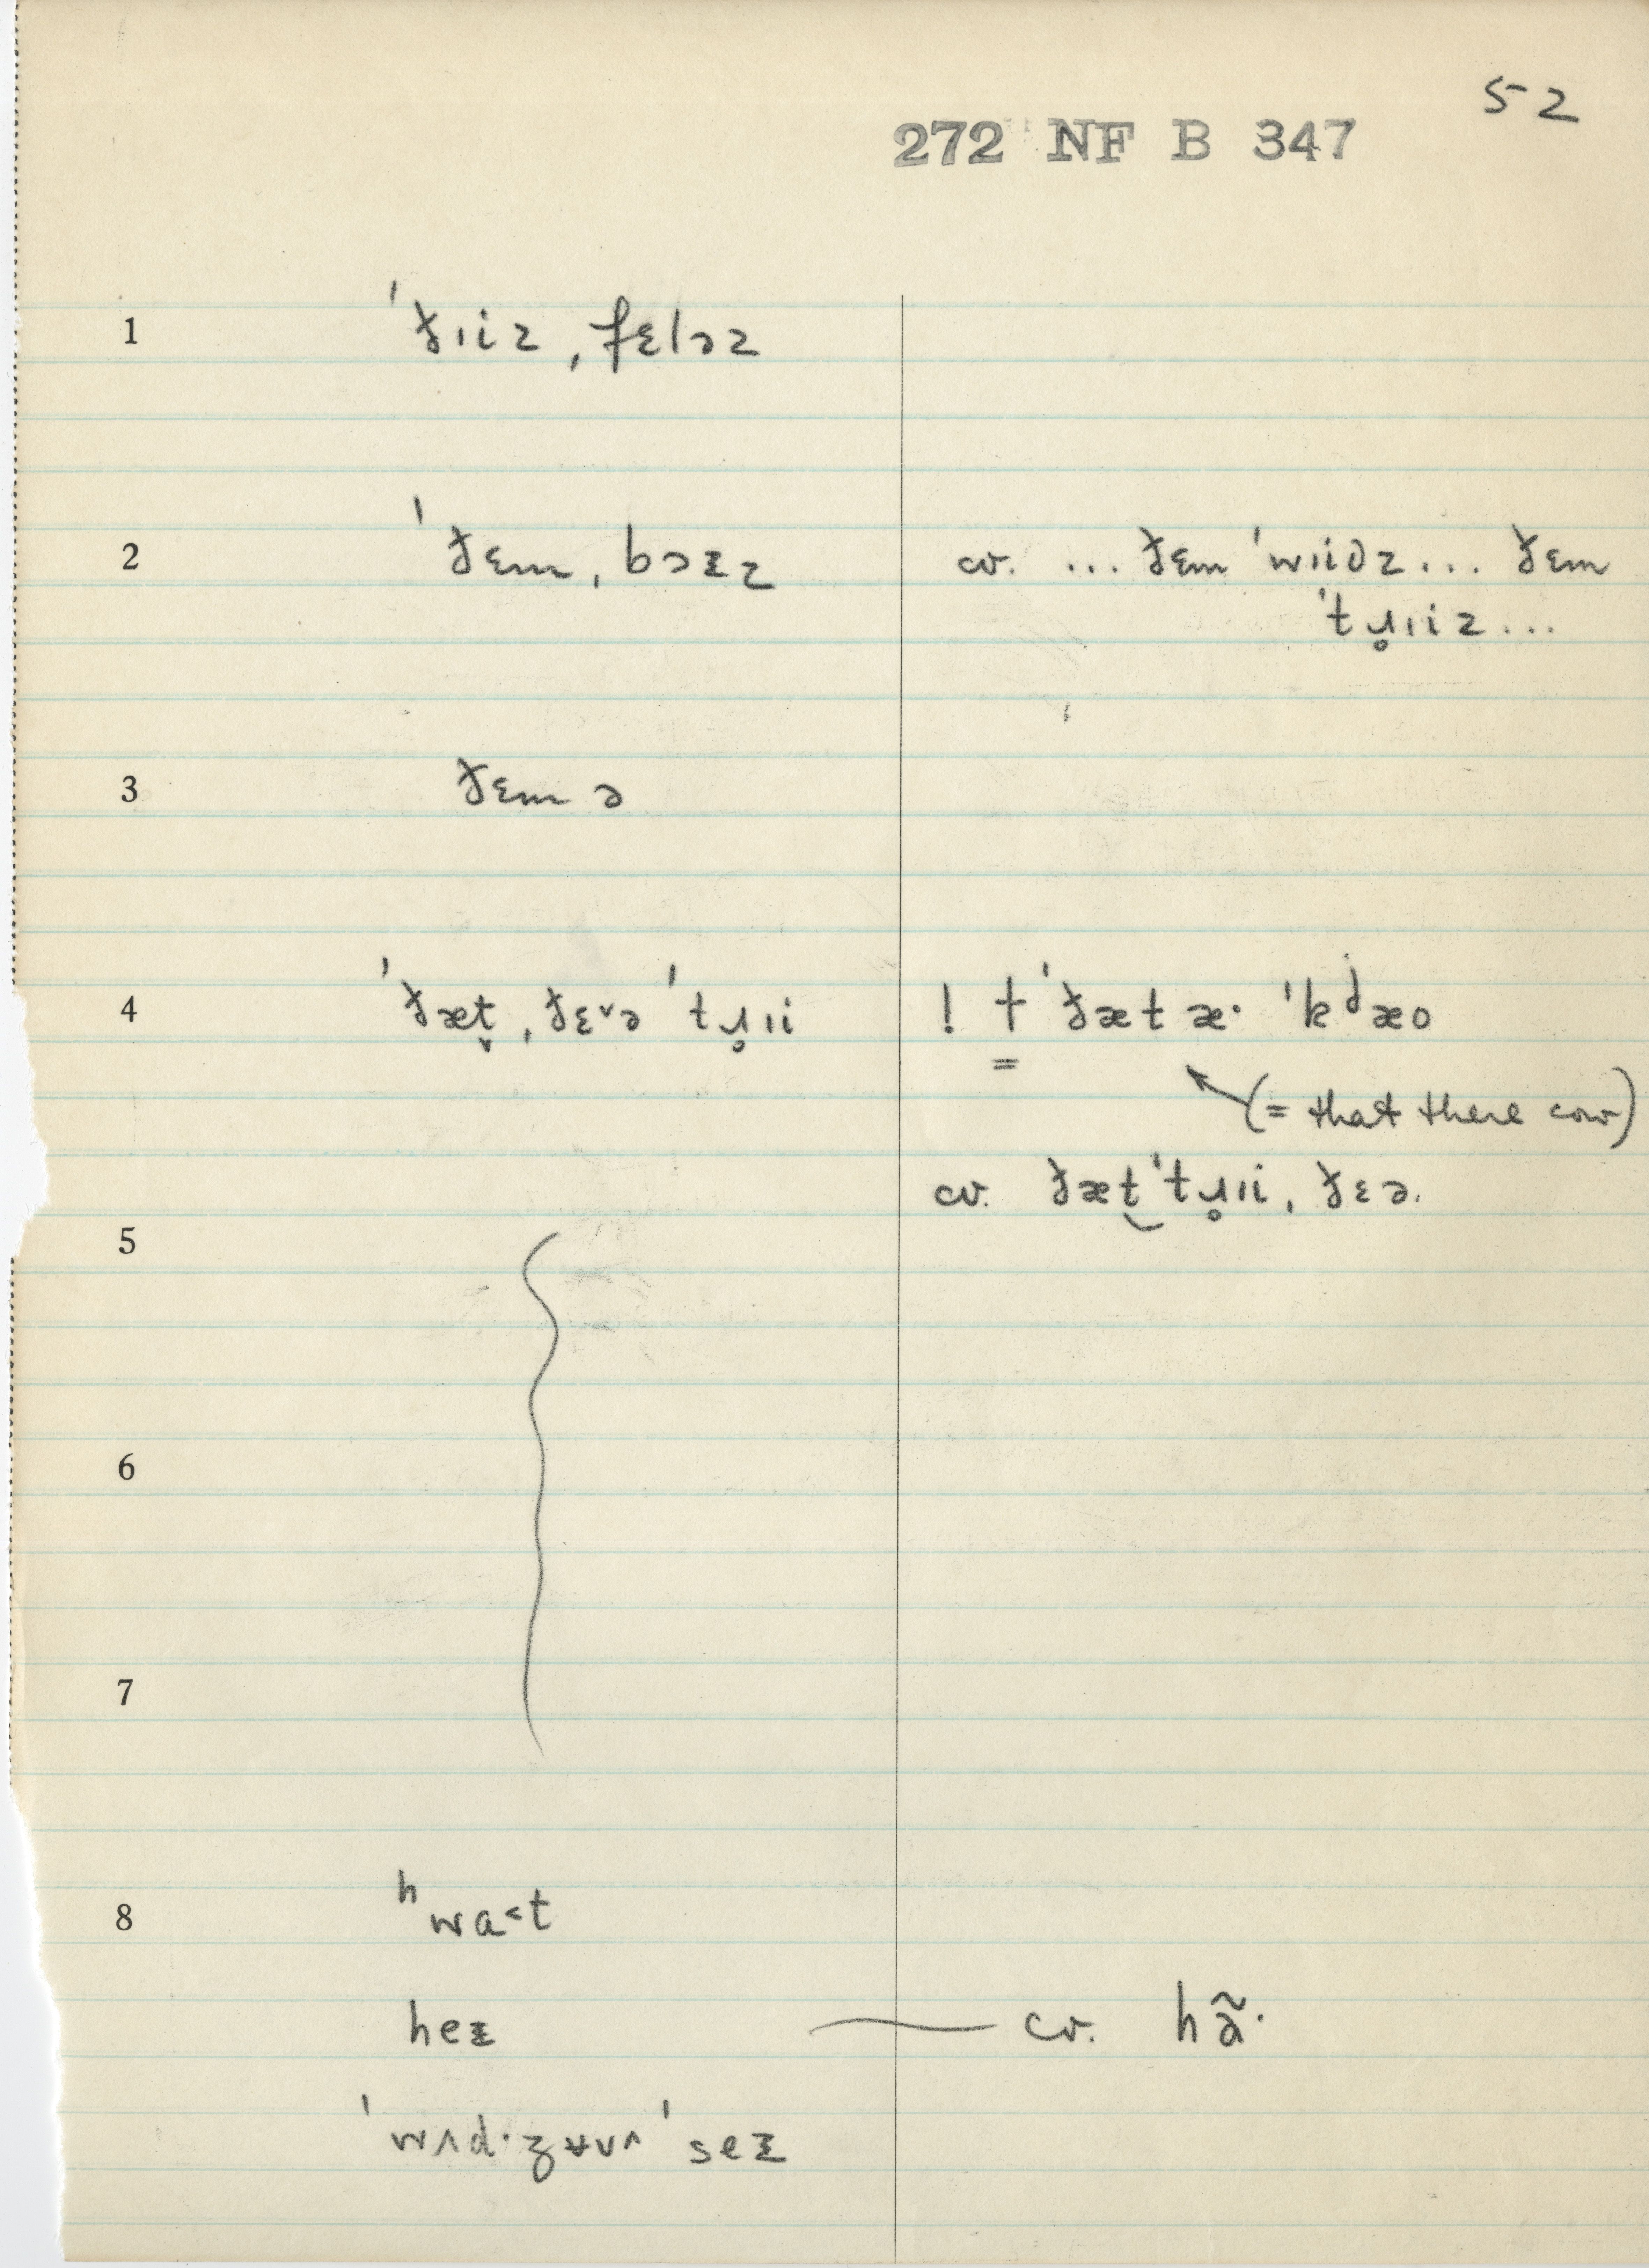 52
272 NF B 347
1 ˈðɪiz, fɛləz
2 ˈðɛm, bɔᵻz cv. ... ðɛm ˈwɪidz... ðɛm
ˈtɹ̥ɪiz...
3 ðɛm ə
4 ˈðæt̬, ðɛ˅ə ˈtɹ̥ɪi ! † ˈðæt æ· ˈkʲæo
(= that there cow)
cv. ðæt‿ˈtɹ̥ɪi, ðɛə.
5
6
7
8 ʰwɑ˂t
heᵻ — cv. hã·
ˈwʌd·ʒʉv^ ˈseᵻ